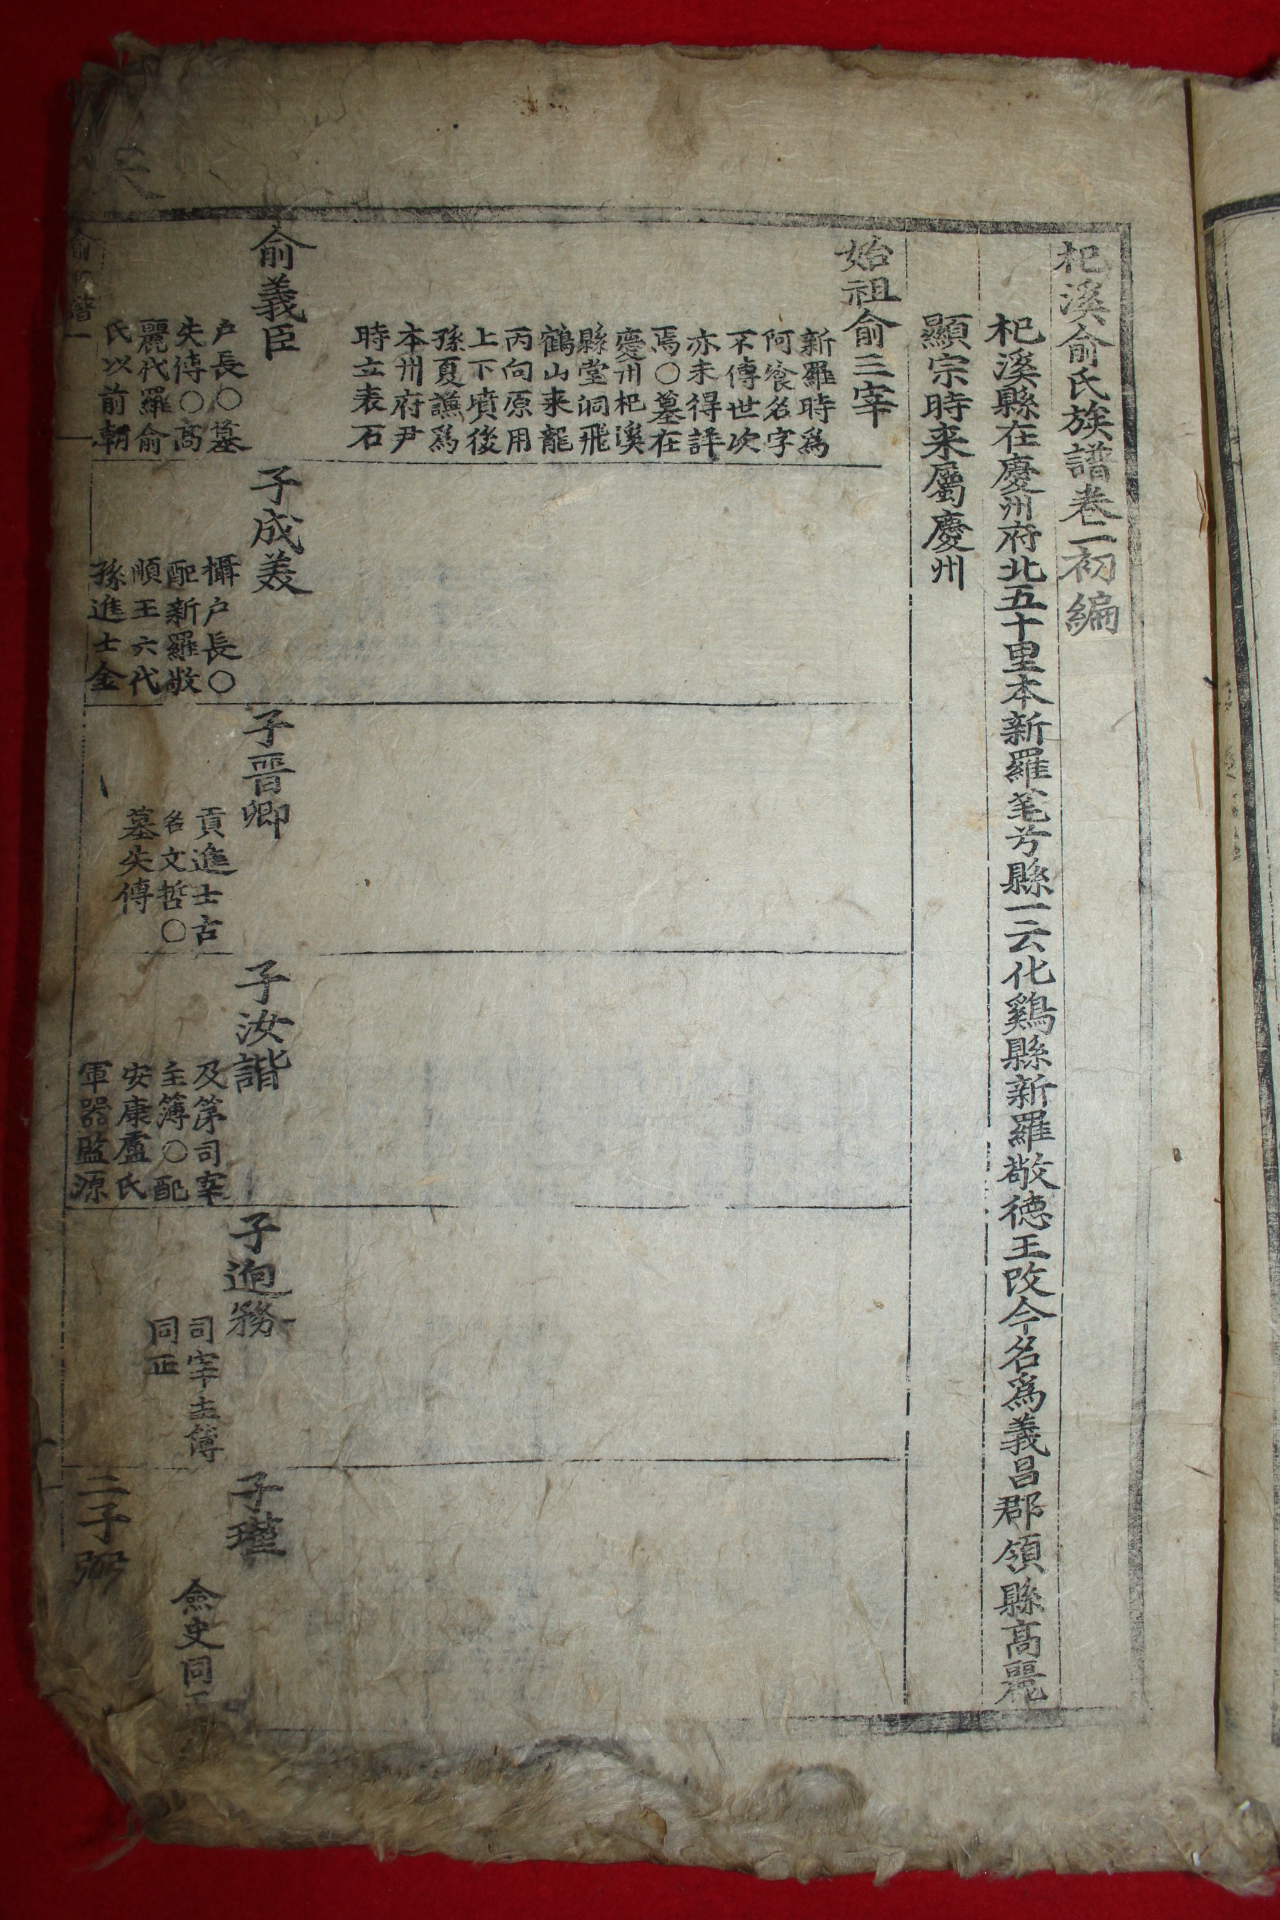 杞溪俞氏族譜卷二初編
杞溪縣在慶州府北五十里本新羅芼兮縣一云化鷄縣新羅敬德王改今名爲義昌郡領縣高麗
顯宗時来屬慶州
始祖俞三宰
新羅時爲
阿飡名字
不傳世次
亦未得詳
焉○墓在
慶州杞溪
縣堂洞飛
鶴山来龍
丙向原用
上下墳後
孫夏謙爲
本州府尹
時立表石
俞義臣
戶長○墓
失傳○高
麗代羅俞
氏以前朝
子成美
攝戶長○
配新羅敬
順王六代
孫進士金
子晋卿
貢進士古
名文哲○
墓失傳
子汝諧
及第司宰
主簿○配
安康盧氏
軍器監源
子迥務
司宰主簿
同正
子瑾
僉史同正
二子弼